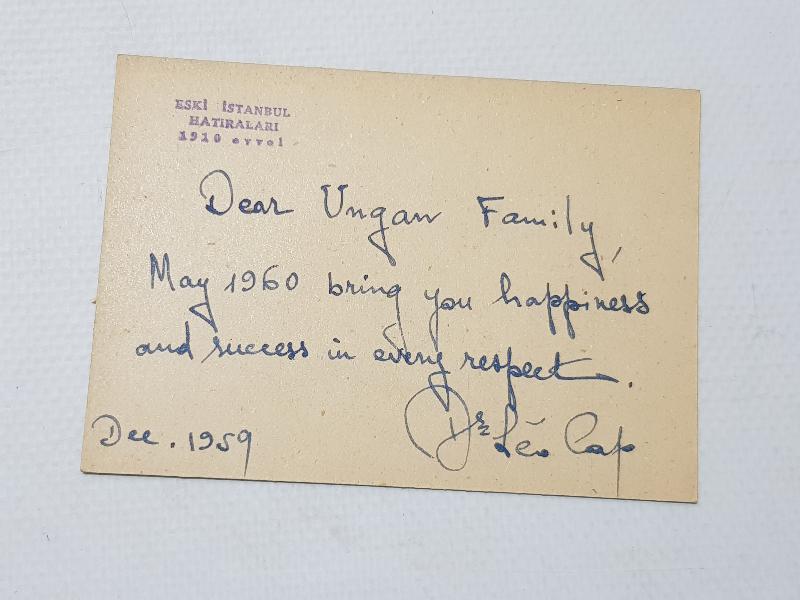 ESKİ İSTANBUL
HATIRALARI
1910 evvel
Dear Ungan Family,
May 1960 bring you happiness
and success in every respect.
Dec. 1959
Dr Léo Cap